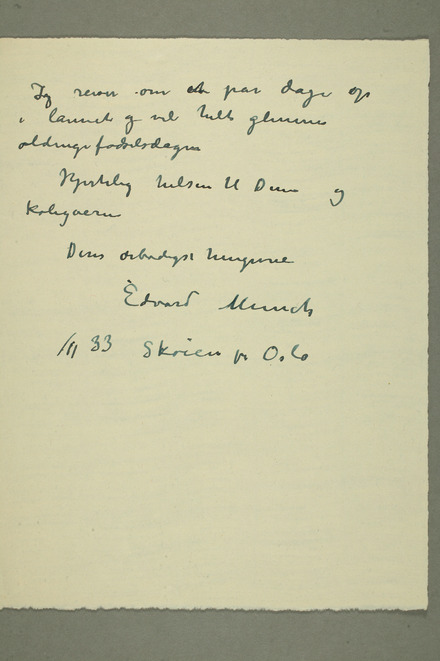 Jeg reiser om et par dage op
i lannet og vil helt glemme
oldinge fødselsdagen
Hjertelig hilsen til Dem og
kolegaerne
Deres ærbødigst hengivne
Edvard Munch
33 Skøien pr Oslo